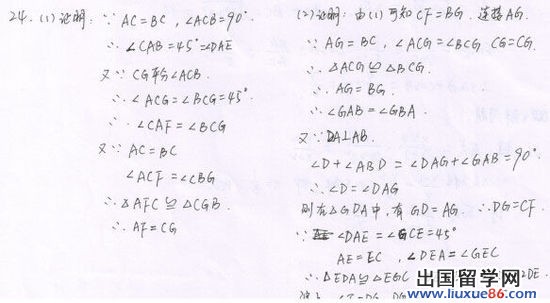 24. (1) 证明: ∵ AC=BC, ∠ACB=90°
∴ ∠CAB=45°=∠DAE
又∵ CG平分∠ACB.
∴ ∠ACG=∠BCG=45°
∴ ∠CAF=∠BCG
又∵ AC=BC
∠ACF=∠CBG
∴ △AFC≌△CGB.
∴ AF=CG
(2) 证明: 由(1)可知CF=BG. 连接AG.
∵ AG=BC, ∠ACG=∠BCG CG=CG.
∴ △ACG≌△BCG.
∴ AG=BG.
∴ ∠GAB=∠GBA.
又∵ DA⊥AB.
∠D+∠ABD=∠DAG+∠GAB=90°
∴ ∠D=∠DAG
则在△GDA中, 有GD=AG. ∴ DG=CF.
∵ ∠DAE=∠GCE=45°
AE=EC, ∠DEA=∠GEC
∴ △EDA≌△EGC
DE.
出国留学网
www.liuxue86.com